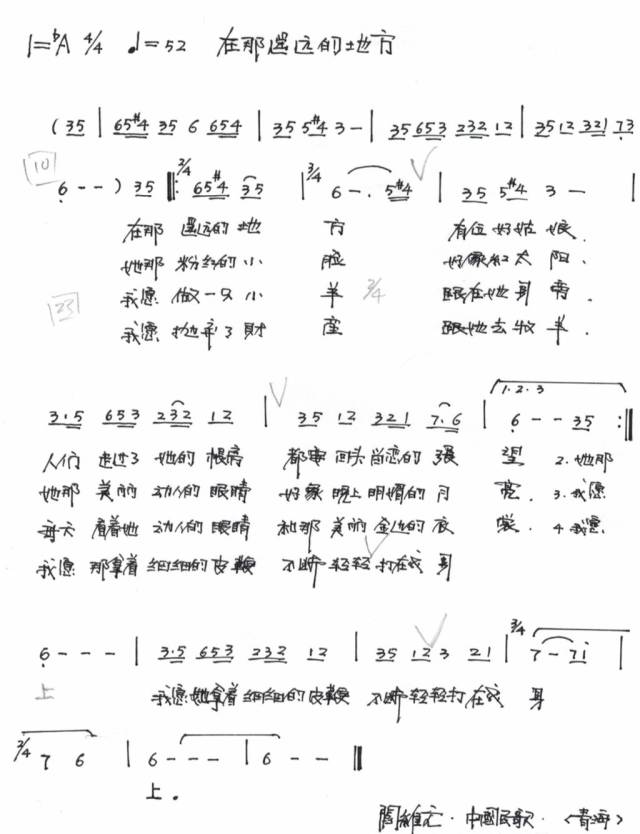 1=ᵇA 4/4 ♩=52 在那遥远的地方
( 35 | 65#4 35 6 654 | 35 5#4 3 - | 35 653 232 12 | 35 12 321 73
10
6 - - ) 35 ‖: 2/4 65#4 35 | 3/4 6 - · 5#4 | 35 5#4 3 - |
在那 遥远的 地 方 有位 好姑 娘.
她那 粉红的 小 脸 好象红太 阳.
23
我愿 做一只 小 羊 3/4 跟在她身 旁.
我愿 抛弃了 财 产 跟她去牧 羊.
3·5 653 232 12 | 35 12 321 7·6 | 1.2.3 6 - - 35 :‖
人们 走过了 她的 帐房 都要 回头 留恋的 张 望 2.她那
她那 美丽 动人的 眼睛 好象 晚上 明媚的 月 亮. 3.我愿
每天 看着她 动人的 眼睛 和那 美丽 金边的 衣 裳. 4.我愿
我愿 那拿着 细细的 皮鞭 不断 轻轻 打在我 身
6 - - - | 3·5 653 232 12 | 35 12 3 21 | 3/4 7 - 7i |
上 我愿 她拿着 细细的 皮鞭 不断 轻轻打 在我 身
2/4 7 6 | 6 - - - | 6 - - ‖
上.
閻維文·中國民歌·〈青海〉